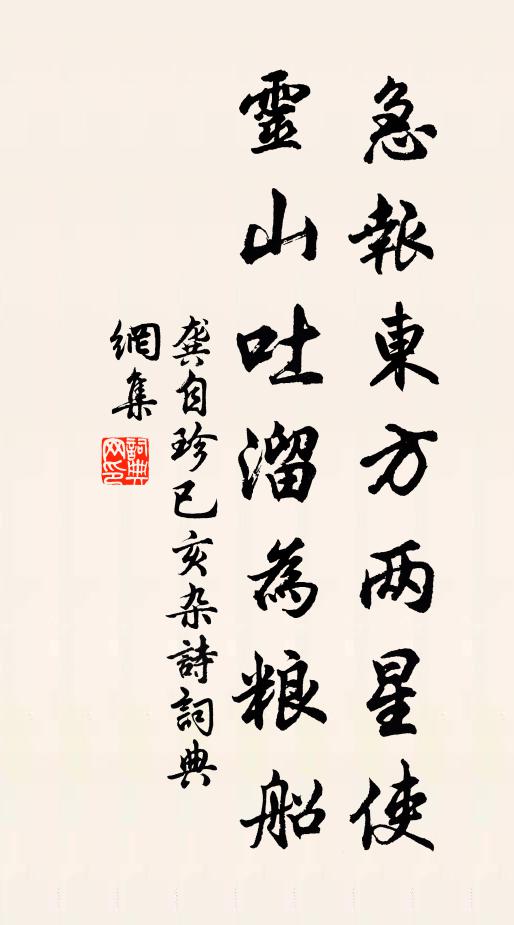 急報東方两星使
靈山吐溜為粮船
龔自珍己亥杂詩詞典
網集
詞典网印